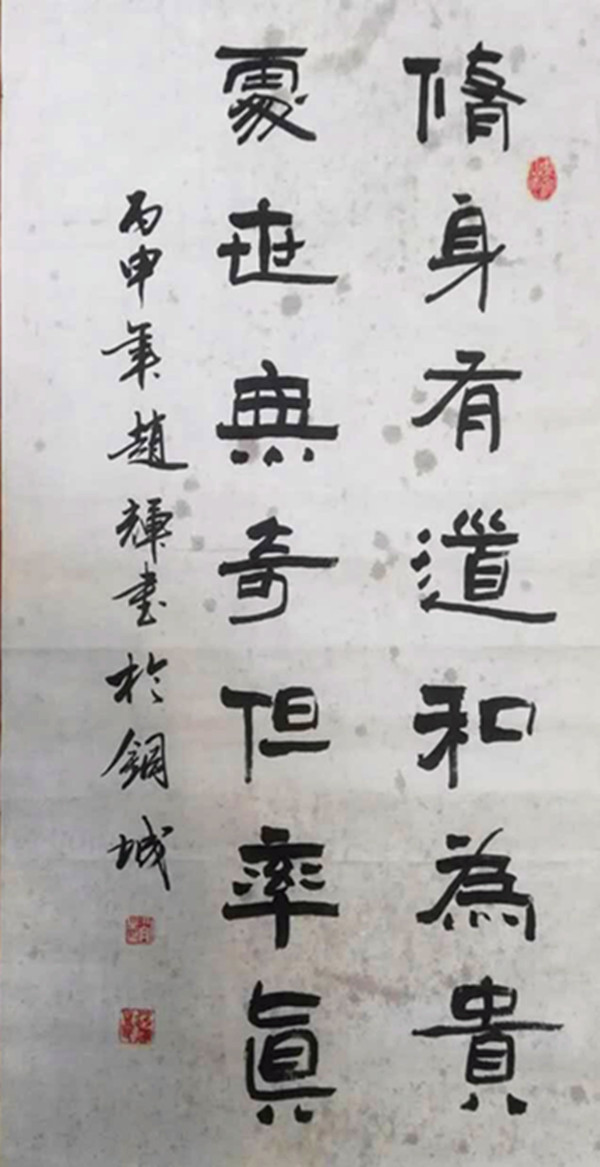 脩身有道和為貴
處世無奇但率真
丙申年趙輝書於銅城